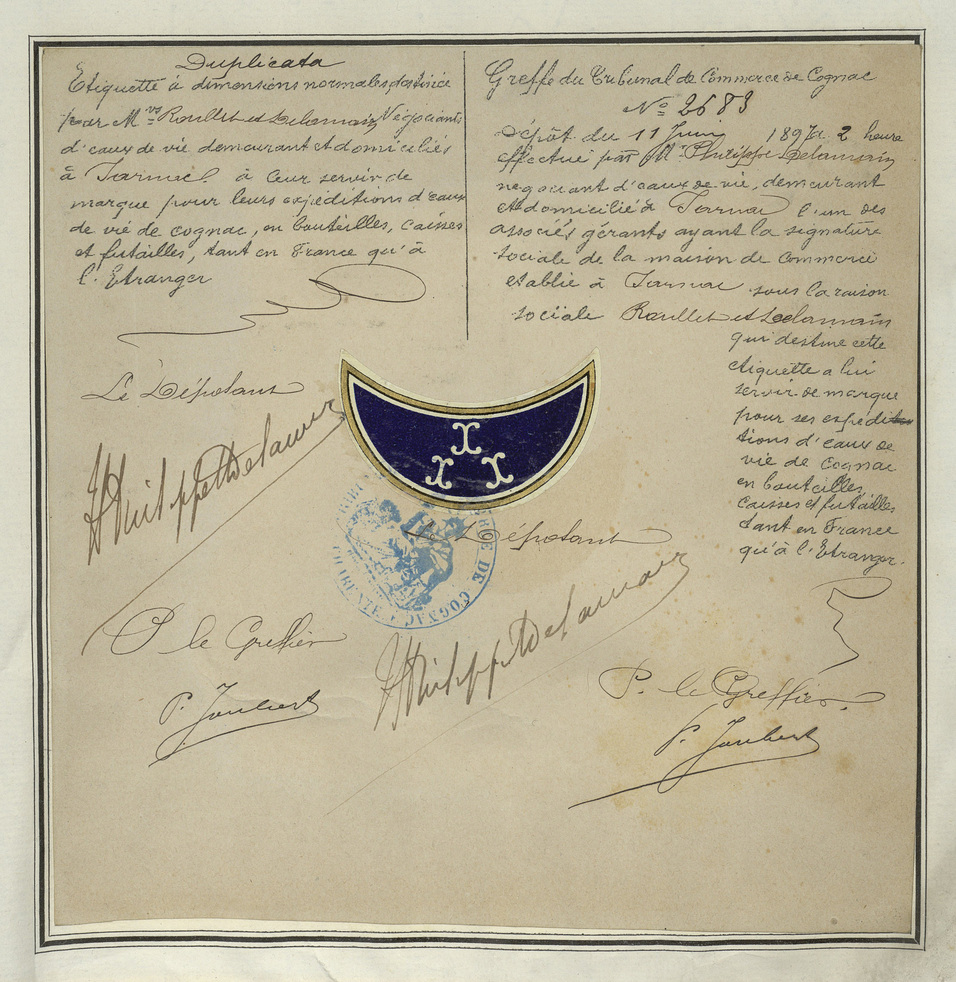 Duplicata
Etiquette à dimensions normales destinée
par M.rs Roullet et Delamain Négociants
d'eaux de vie demeurant et domiciliés
à Jarnac à leur servir de
marque pour leurs expéditions d'eaux
de vie de cognac, en bouteilles, caisses
et futailles, tant en France qu'à
l'Etranger
Le Dépotant
Philippe Delamain
P le Greffier
P. Joubert
Greffe du Tribunal de Commerce de Cognac
No 2683
Dépôt du 11 Juin 1897 à 2 heure
effectué par Mr Philippe Delamain
negociant d'eaux de vie, demeurant
et domicilié à Jarnac l'un des
associés gérants ayant la signature
sociale de la maison de commerce
etablie à Jarnac sous la raison
sociale Roullet et Delamain
qui destine cette
etiquette a lui
servir de marque
pour ses expédi
tions d'eaux de
vie de Cognac
en bouteilles,
caisses et futailles
tant en France
qu'à l'Etranger.
Le Dépotant
DE COGNAC
CHARENTE
Philippe Delamain
P. le Greffier
P. Joubert